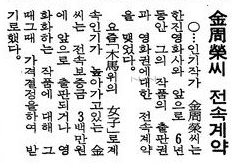 金周榮씨 전속계약
○…인기작가 金周榮씨는
한진영화사와 앞으로 6년
동안 그의 작품의 출판권
과 영화권에대한 전속계약
을 맺었다.
요즘「木馬위의 女子」로계
속인기가 높아가고있는 金
씨는 전속보증금 3백만원
에 앞으로 출판되거나 영
화화하는 작품에 대해 그
때그때 가격결정을하여 받
기로했다.